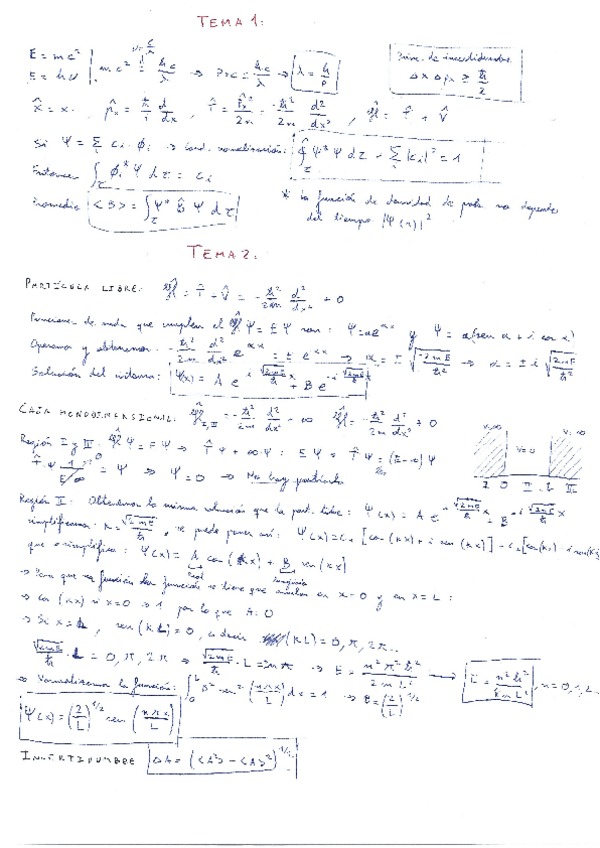 TEMA 1:
E = mc²
E = hν | mc² = hc/λ → p·c = hc/λ → λ = h/p
Princ. de incertidumbre
Δx Δpx ≥ ħ/2
x̂ = x· , p̂x = ħ/i d/dx , T̂ = p̂x²/2m = -ħ²/2m d²/dx² , Ĥ = T̂ + V̂
Si Ψ = Σ ci · ϕi → Cond. normalización: ∫ Ψ* Ψ dτ = Σ |ci|² = 1
Entonces ∫ ϕi* Ψ dτ = ci
Promedio <B> = ∫ Ψ* B̂ Ψ dτ
* La función de densidad de prob no depende
del tiempo |Ψ(x)|²
TEMA 2:
PARTÍCULA LIBRE: Ĥ = T̂ + V̂ = -ħ²/2m d²/dx² + 0
Funciones de onda que cumplen el ĤΨ = EΨ son: Ψ = ae^αx y Ψ = a(sen α + i cos α)
Operamos y obtenemos: -ħ²/2m d²/dx² e^αx = E e^αx → α = ± √(-2mE/ħ²) → α = ± i √(2mE/ħ²)
Solución del sistema: Ψ(x) = A e^(i √(2mE)/ħ x) + B e^(-i √(2mE)/ħ x)
CAJA MONODIMENSIONAL: Ĥ I,III = -ħ²/2m d²/dx² - ∞ Ĥ = -ħ²/2m d²/dx² + 0
Región I y III: ĤΨ = EΨ → T̂Ψ + ∞·Ψ = EΨ T̂Ψ = (E-∞)Ψ
T̂·Ψ 1/E-∞ = Ψ → Ψ = 0 → No hay partícula
V=∞ V=0 V=∞
I 0 II L III
Región II: Obtendremos la misma solución que la part. libre: Ψ(x) = A e^(i √(2mE)/ħ x) B e^(-i √(2mE)/ħ x)
simplificamos k = √(2mE)/ħ , se puede poner así: Ψ(x) = c₁ [cos(kx) + i sen(kx)] - c₂ [cos(kx) - i sen(kx)
que simplifica: Ψ(x) = A cos(kx) + B sen(kx)
Real Imaginario
→ Para que sea función la función se tiene que anular en x=0 y en x=L:
→ Cos(kx) si x=0 → 1 por lo que A=0
→ Si x=L , sen(kL) = 0, es decir (kL) = 0, π, 2π...
√(2mE)/ħ · L = 0, π, 2π → √(2mE)/ħ · L = nπ → E = n²π²ħ²/2mL² → E = n²h²/8mL² , n = 0, 1, 2...
→ Normalizamos la función: ∫₀ᴸ B² sen²(nπx/L) dx = 1 → B = (2/L)^1/2
Ψ(x) = (2/L)^1/2 sen(nπx/L)
INCERTIDUMBRE ΔA = (<A²> - <A>²)^1/2